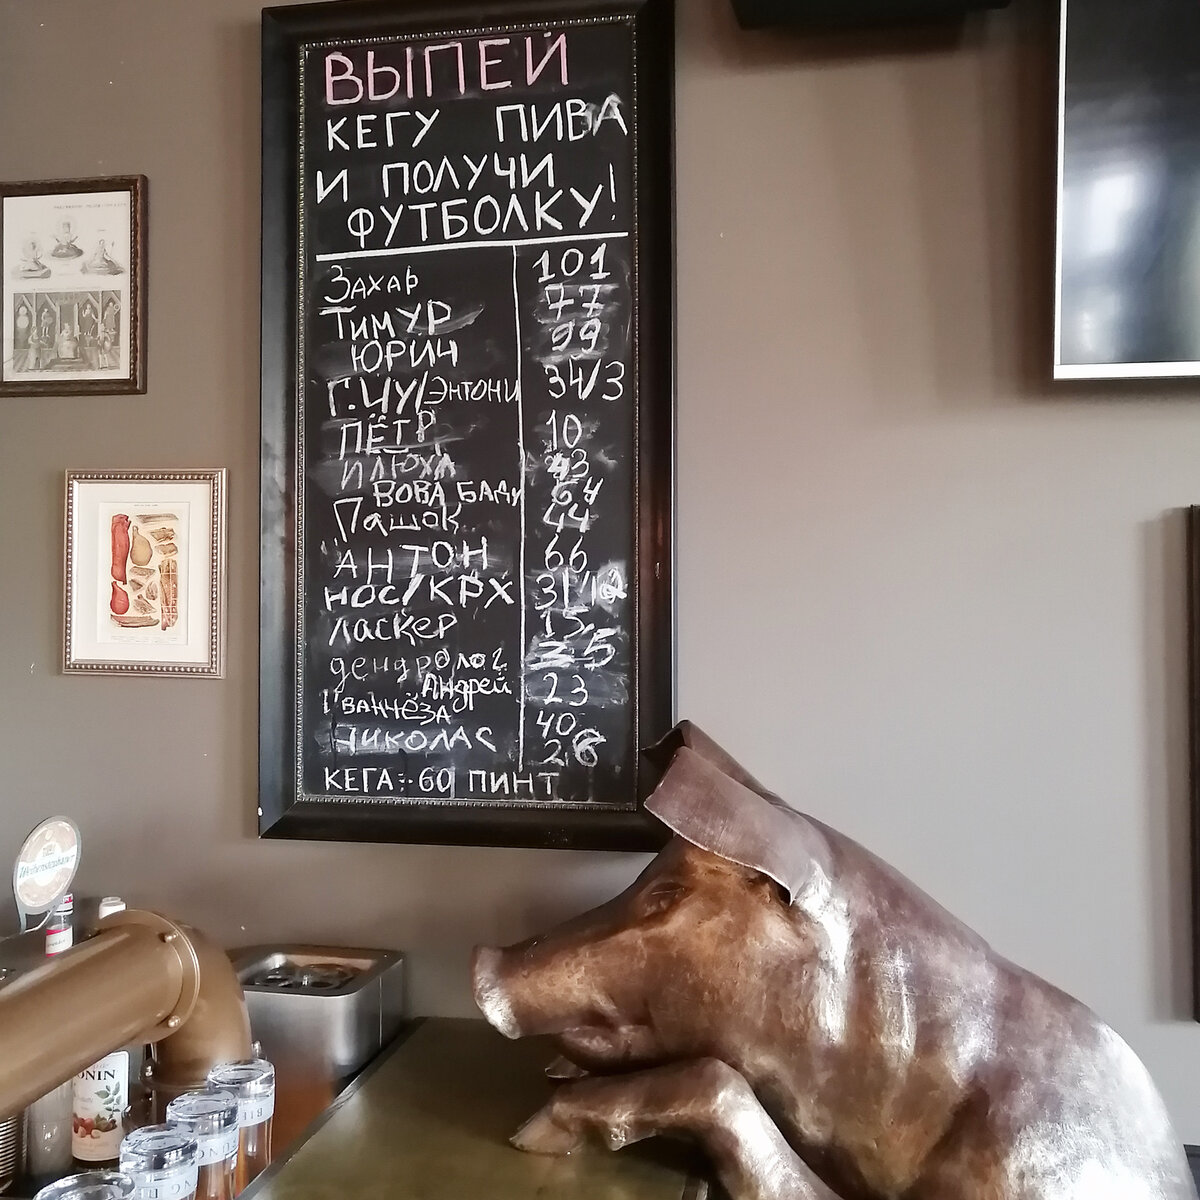 ВЫПЕЙ
КЕГУ ПИВА
И ПОЛУЧИ
ФУТБОЛКУ!
Захар 101
Тимур 77
ЮРИЧ 99
Г.ЧУ/ЭНТОНИ 34/3
ПЁТР 10
ИЛЮХА 43
ВОВА БАДУ 64
Пашок 44
АНТОН 66
НОС/КРХ
Ласкер 15
дендролог 5
Андрей 23
ИВАНЧЁЗА 40
НИКОЛАС 26
КЕГА - 60 ПИНТ
ONIN